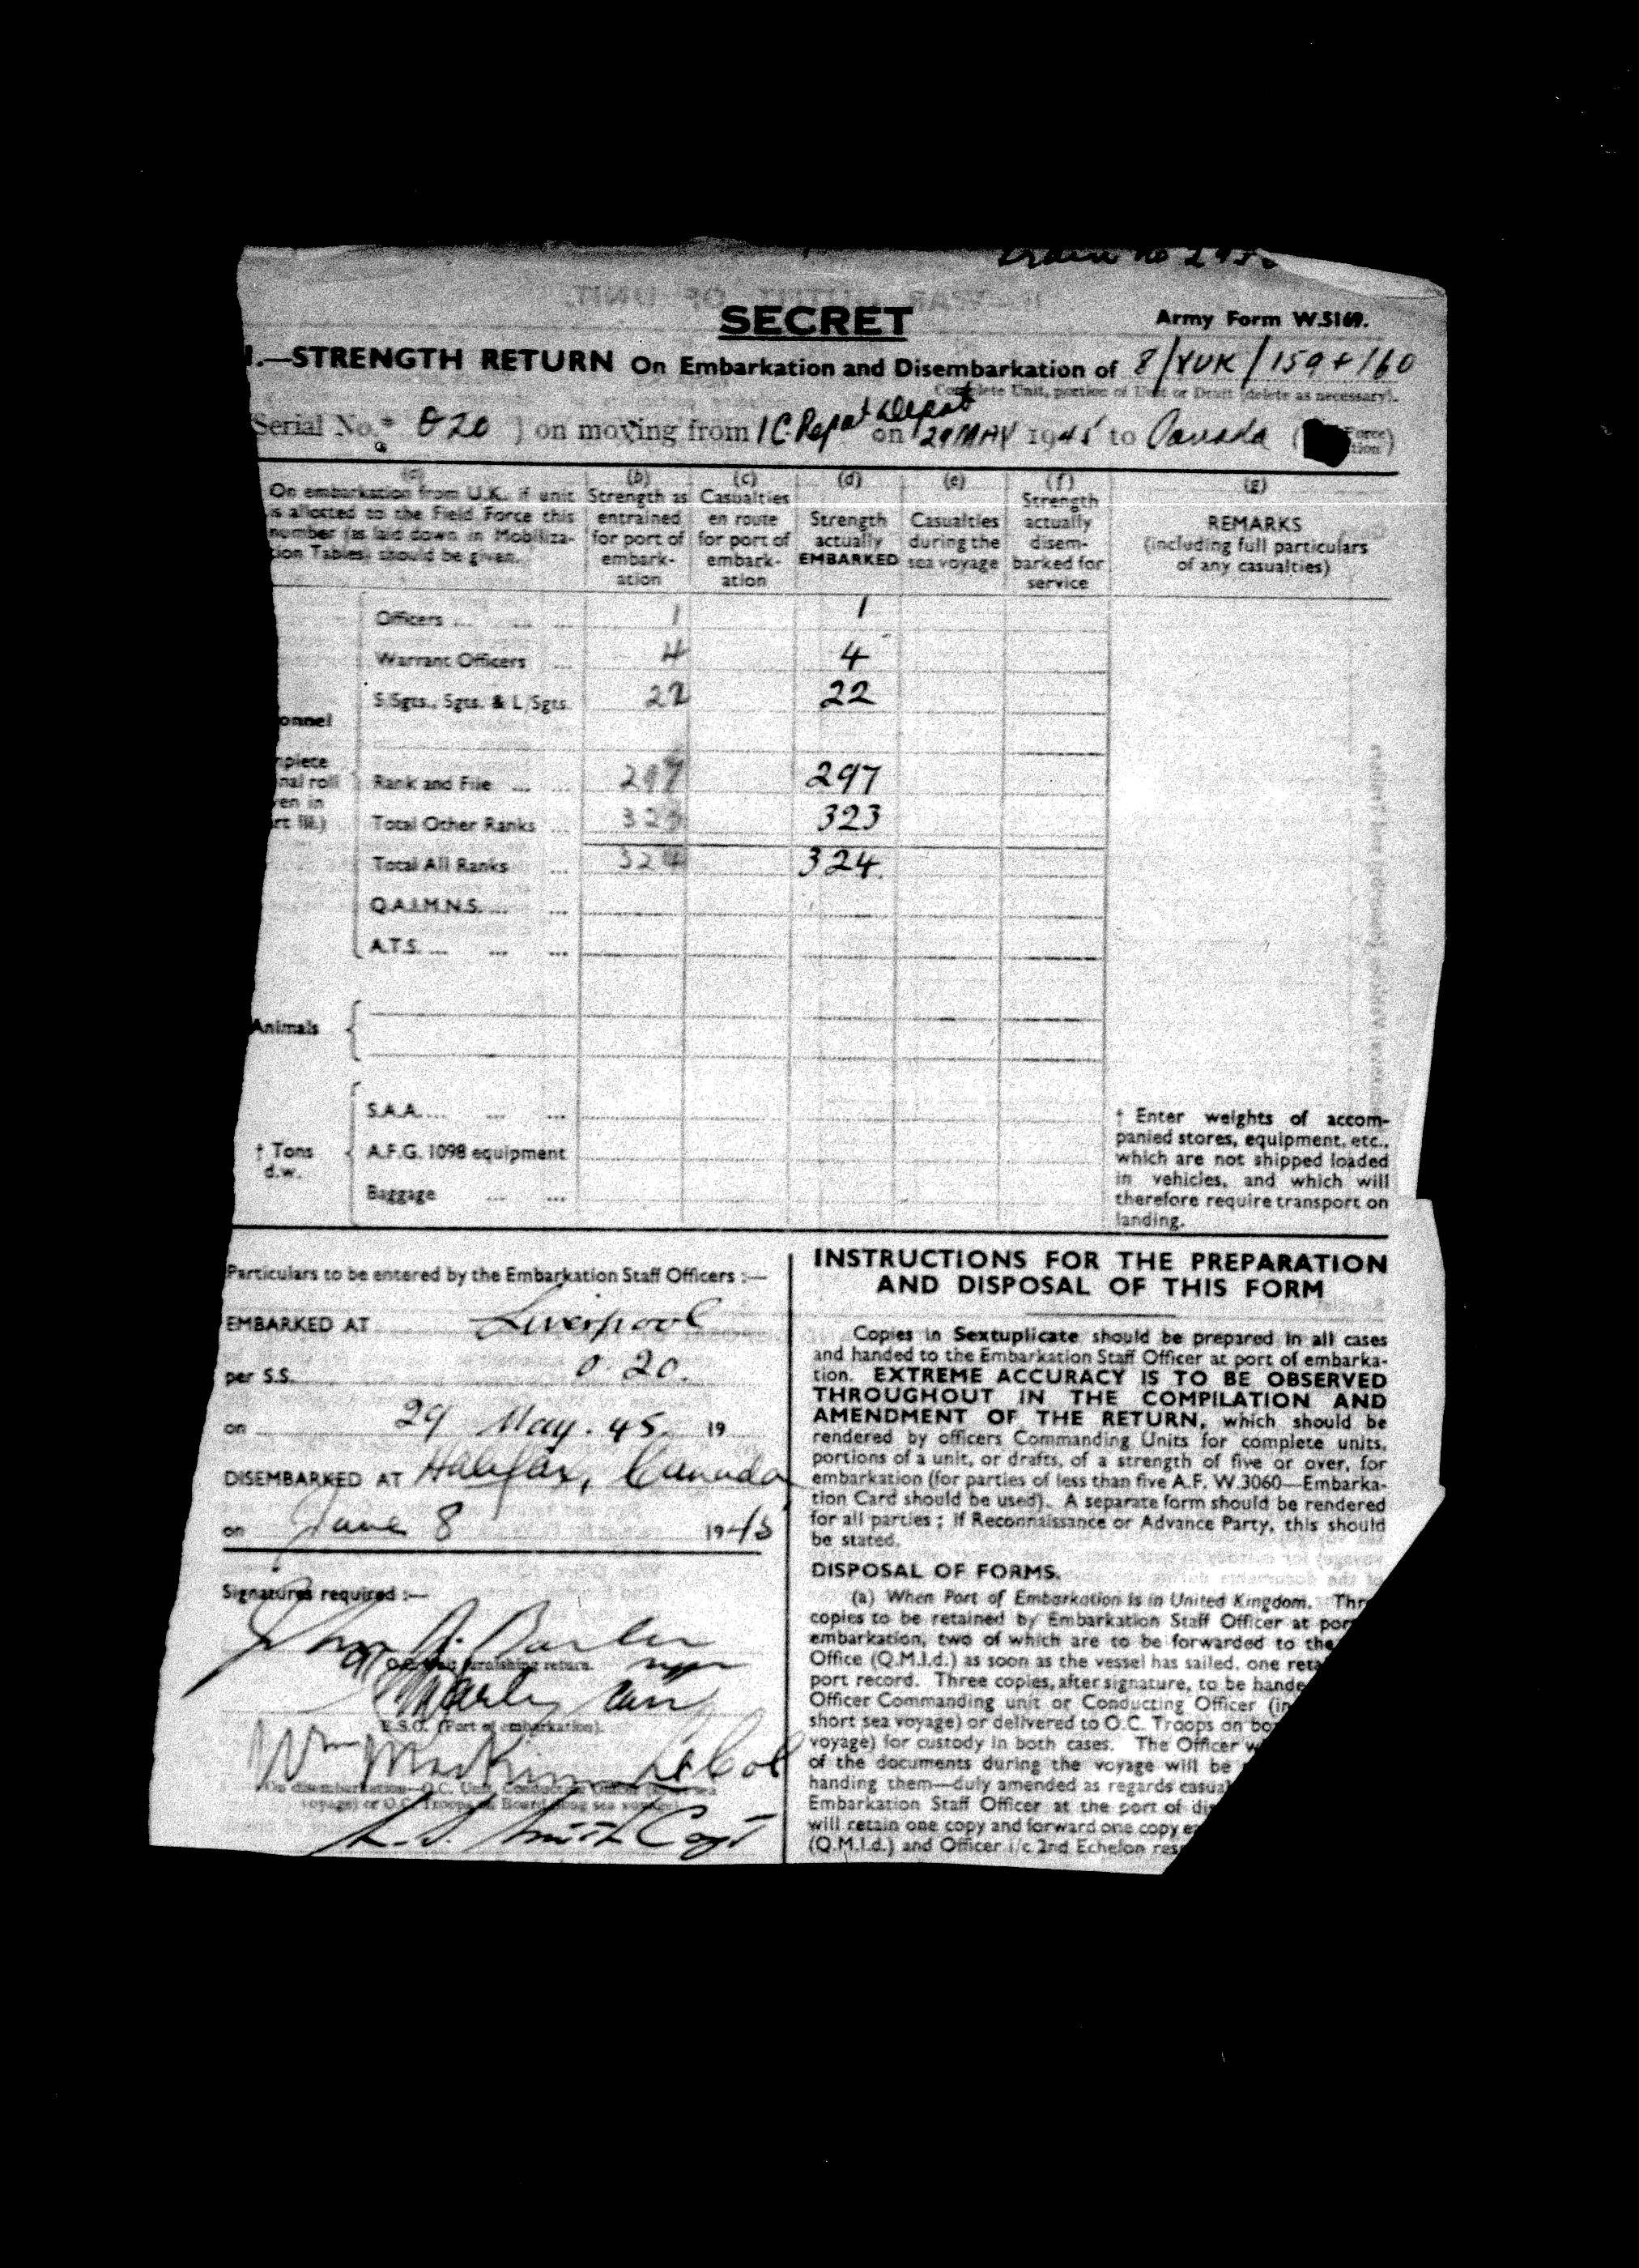 SECRET
Army Form W.5169.
1.—STRENGTH RETURN On Embarkation and Disembarkation of 8/YUK/159+160
Complete Unit, portion of Unit or Draft (delete as necessary).
Serial No.* 020 ) on moving from 1 C. Repat Depot on 29 MAY 1945 to Canada ( Force)
On embarkation from U.K. if unit is allotted to the Field Force this number (as laid down in Mobilization Tables) should be given.
(b) Strength as entrained for port of embark-ation
(c) Casualties en route for port of embark-ation
(d) Strength actually EMBARKED
(e) Casualties during the sea voyage
(f) Strength actually disem-barked for service
(g) REMARKS (including full particulars of any casualties)
Officers ... ... ... 1 1
Warrant Officers ... 4 4
S/Sgts., Sgts. & L/Sgts. 22 22
onnel
mplete
nal roll
ven in
rt III.)
Rank and File ... ... 297 297
Total Other Ranks ... 323 323
Total All Ranks ... 324 324.
Q.A.I.M.N.S. ... ...
A.T.S. ... ... ...
Animals
† Tons d.w.
S.A.A. ... ... ...
A.F.G. 1098 equipment
Baggage ... ...
† Enter weights of accom-
panied stores, equipment, etc.,
which are not shipped loaded
in vehicles, and which will
therefore require transport on
landing.
Particulars to be entered by the Embarkation Staff Officers :—
EMBARKED AT Liverpool
per S.S. 0.20.
on 29 May. 45. 19
DISEMBARKED AT Halifax, Canada
on June 8 1945
Signatures required :—
furnishing return.
E.S.O. (Port of embarkation).
On disembarkation—O.C. Unit, Conducting
voyage) or O.C. Troops on Board (long sea voyage)
Smith Capt
INSTRUCTIONS FOR THE PREPARATION
AND DISPOSAL OF THIS FORM
Copies in Sextuplicate should be prepared in all cases
and handed to the Embarkation Staff Officer at port of embarka-
tion. EXTREME ACCURACY IS TO BE OBSERVED
THROUGHOUT IN THE COMPILATION AND
AMENDMENT OF THE RETURN, which should be
rendered by officers Commanding Units for complete units,
portions of a unit, or drafts, of a strength of five or over, for
embarkation (for parties of less than five A.F. W.3060—Embarka-
tion Card should be used). A separate form should be rendered
for all parties ; if Reconnaissance or Advance Party, this should
be stated.
DISPOSAL OF FORMS.
(a) When Port of Embarkation is in United Kingdom. Thr
copies to be retained by Embarkation Staff Officer at por
embarkation, two of which are to be forwarded to the
Office (Q.M.I.d.) as soon as the vessel has sailed, one reta
port record. Three copies, after signature, to be hande
Officer Commanding unit or Conducting Officer (in
short sea voyage) or delivered to O.C. Troops on bo
voyage) for custody in both cases. The Officer w
of the documents during the voyage will be
handing them—duly amended as regards casual
Embarkation Staff Officer at the port of dis
will retain one copy and forward one copy e
(Q.M.I.d.) and Officer i/c 2nd Echelon res